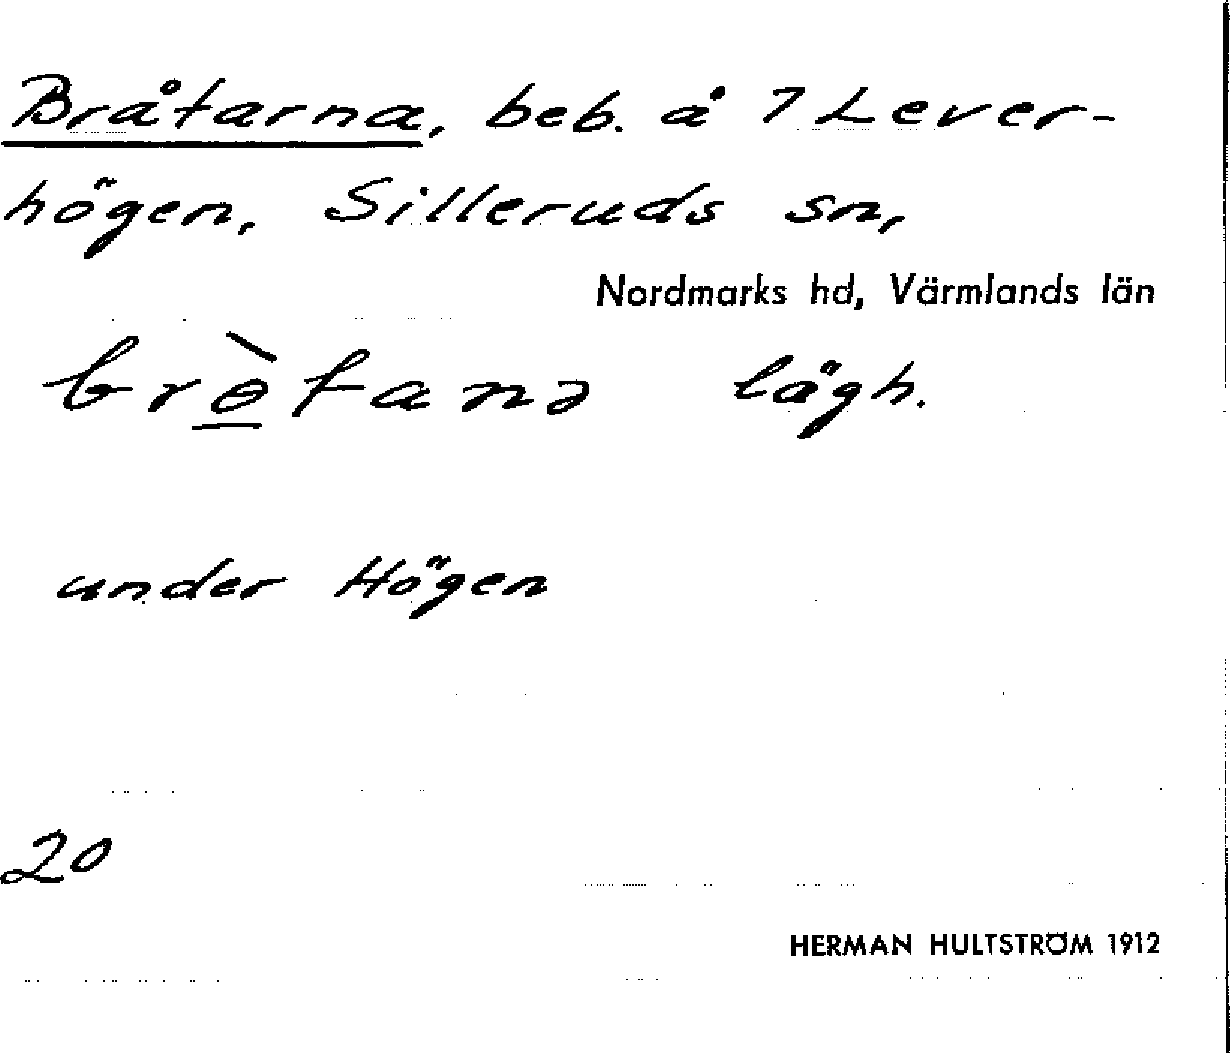 Bråtarna, beb. å 7 Lever-
högen, Silleruds sn,
Nordmarks hd, Värmlands län
brɵ̠̀tanə lägh.
under Högen
20
HERMAN HULTSTRÖM 1912